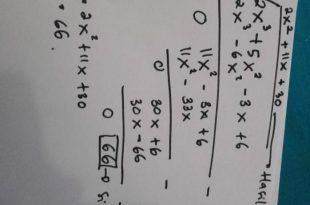 2x² + 11x + 30 → Hasil
2x³ + 5x² - 3x + 6
2x³ - 6x² -
0 11x² - 3x + 6
11x² - 33x -
0 30x + 6
30x - 66 -
0 66 →
= 2x² + 11x + 30
= 66.